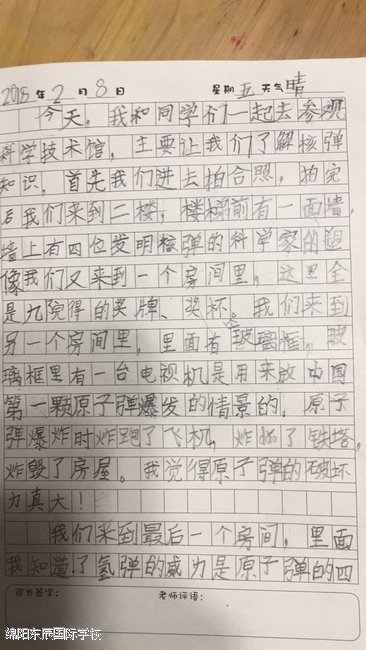 2018年2月8日 星期五 天气晴
今天，我和同学们一起去参观
科学技术馆，主要让我们了解核弹
知识。首先我们进去拍合照，拍完
后我们来到二楼，楼梯前有一面墙，
墙上有四位发明核弹的科学家的塑
像我们又来到一个房间里，这里全
是九院得的奖牌、奖杯。我们来到
另一个房间里，里面有玻璃框，玻
璃框里有一台电视机是用来放中国
第一颗原子弹爆发的情景的。原子
弹爆炸时炸跑了飞机，炸了铁塔，
炸毁了房屋。我觉得原子弹的破坏
力真大！
我们来到最后一个房间，里面
我知道了氢弹的威力是原子弹的四
家长签字： 老师评语：
绵阳东辰国际学校